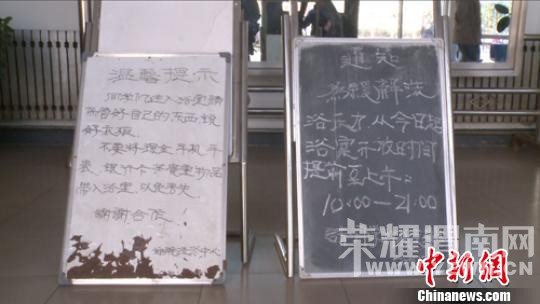 温馨提示
同学们进入浴室请
保管好自己的东西,锁
好衣柜。
不要将现金、手机、手
表、银行卡等贵重物品
带入浴室,以免丢失。
谢谢合作!
通知
为缓解洗
浴压力,从今日起
浴室开放时间
提前至上午:
10:00—21:00
荣耀渭南网
中新网
Chinanews.com